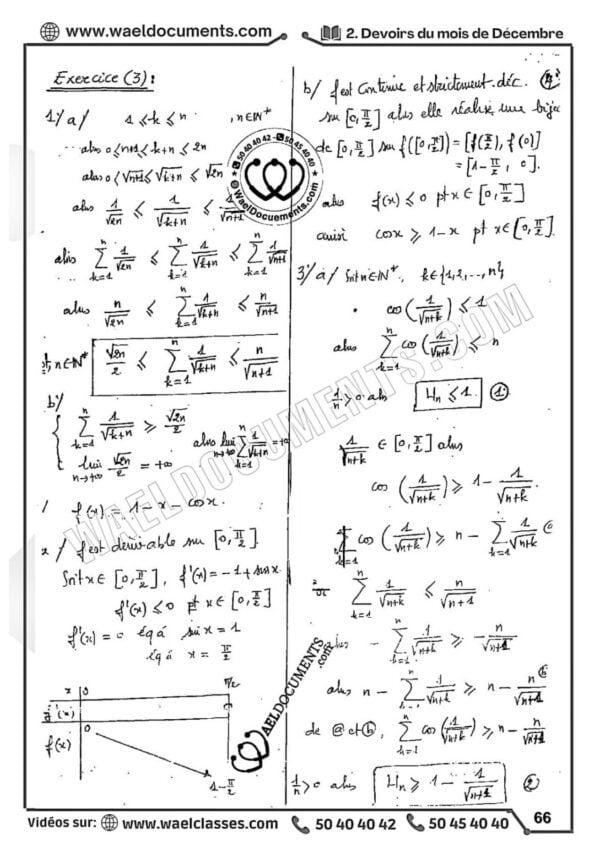 www.waeldocuments.com
2. Devoirs du mois de Décembre
Exercice (3) :
1°/ a/ 1 ≤ k ≤ n , n ∈ IN*
alors 0 ≤ n+1 ≤ k+n ≤ 2n
alors 0 < √(n+1) ≤ √(k+n) ≤ √(2n)
alors 1/√(2n) ≤ 1/√(k+n) ≤
alors ∑_{k=1}^{n} 1/√(2n) ≤ ∑_{k=1}^{n} 1/√(k+n) ≤ ∑_{k=1}^{n} 1/√(n+1)
alors n/√(2n) ≤ ∑_{k=1}^{n} 1/√(k+n) ≤ n/√(n+1)
n ∈ IN* √(2n)/2 ≤ ∑_{k=1}^{n} 1/√(k+n) ≤ n/√(n+1)
b/
{ ∑_{k=1}^{n} 1/√(k+n) ≥ √(2n)/2
lim_{n→+∞} √(2n)/2 = +∞
alors lim_{n→+∞} ∑_{k=1}^{n} 1/√(k+n) = +∞
/ f(x) = 1 - x - cos x.
/ f est dérivable sur [0, π/2]
Soit x ∈ [0, π/2], f'(x) = -1 + sin x
f'(x) ≤ 0 pt x ∈ [0, π/2]
f'(x) = 0 éq à sin x = 1
éq à x = π/2
x 0 π/2
f'(x)
f(x) 0
1 - π/2
b/ f est continue et strictement déc.
sur [0, π/2] alors elle réalise une bije
de [0, π/2] sur f([0, π/2]) = [f(π/2), f(0)]
= [1 - π/2, 0].
alors f(x) ≤ 0 pt x ∈ [0, π/2]
ainsi cos x ≥ 1 - x pt x ∈ [0, π/2].
3°/ a/ Soit n ∈ IN*, k ∈ {1, 2, ..., n}
cos(1/√(n+k)) ≤ 1
alors ∑_{k=1}^{n} cos(1/√(n+k)) ≤ n
1/n > 0 als Un ≤ 1. ①
1/√(n+k) ∈ [0, π/2] alors
cos(1/√(n+k)) ≥ 1 - 1/√(n+k).
∑ cos(1/√(n+k)) ≥ n - ∑_{k=1}^{n} 1/√(n+k) ⓐ
or ∑_{k=1}^{n} 1/√(n+k) ≤ n/√(n+1)
alors - ∑_{k=1}^{n} 1/√(n+k) ≥ - n/√(n+1)
alors n - ∑_{k=1}^{n} 1/√(n+k) ≥ n - n/√(n+1) ⓑ
de ⓐ et ⓑ, ∑_{k=1}^{n} cos(1/√(n+k)) ≥ n - n/√(n+1)
1/n > 0 alors Un ≥ 1 - 1/√(n+1) ②
50 40 40 42 - 50 45 40 40
WaelDocuements.com
WAELDOCUMENTS.COM
WAELDOCUMENTS.com
Vidéos sur: www.waelclasses.com 50 40 40 42 / 50 45 40 40
66